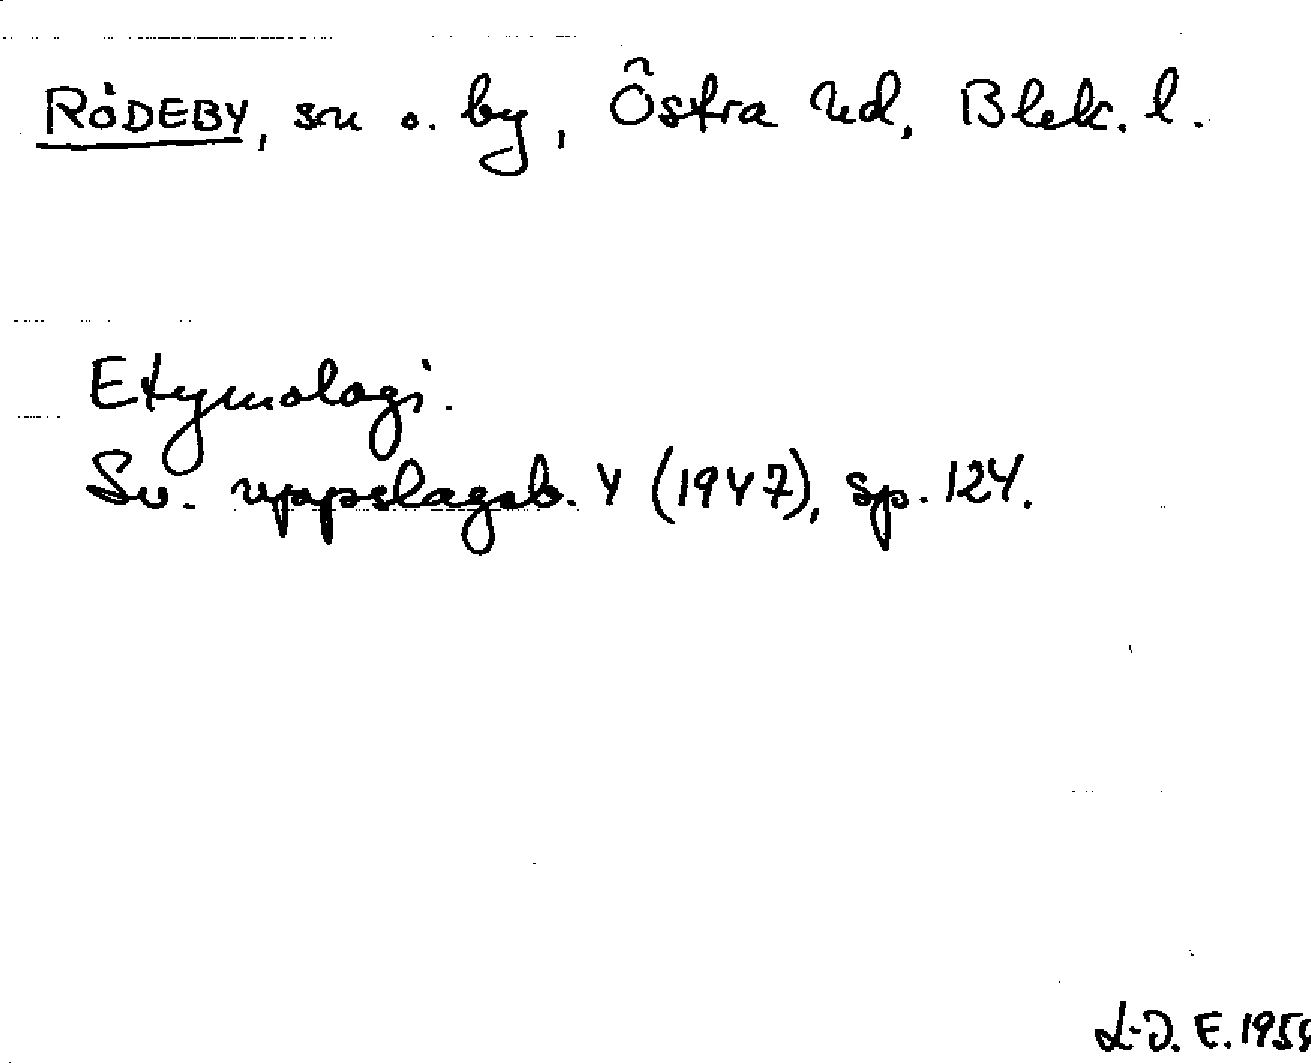 RÖDEBY, sn o. by, Östra hd, Blek. l.
Etymologi.
Sv. uppslagsb. 4 (1947), sp. 124.
L-O. E. 1959